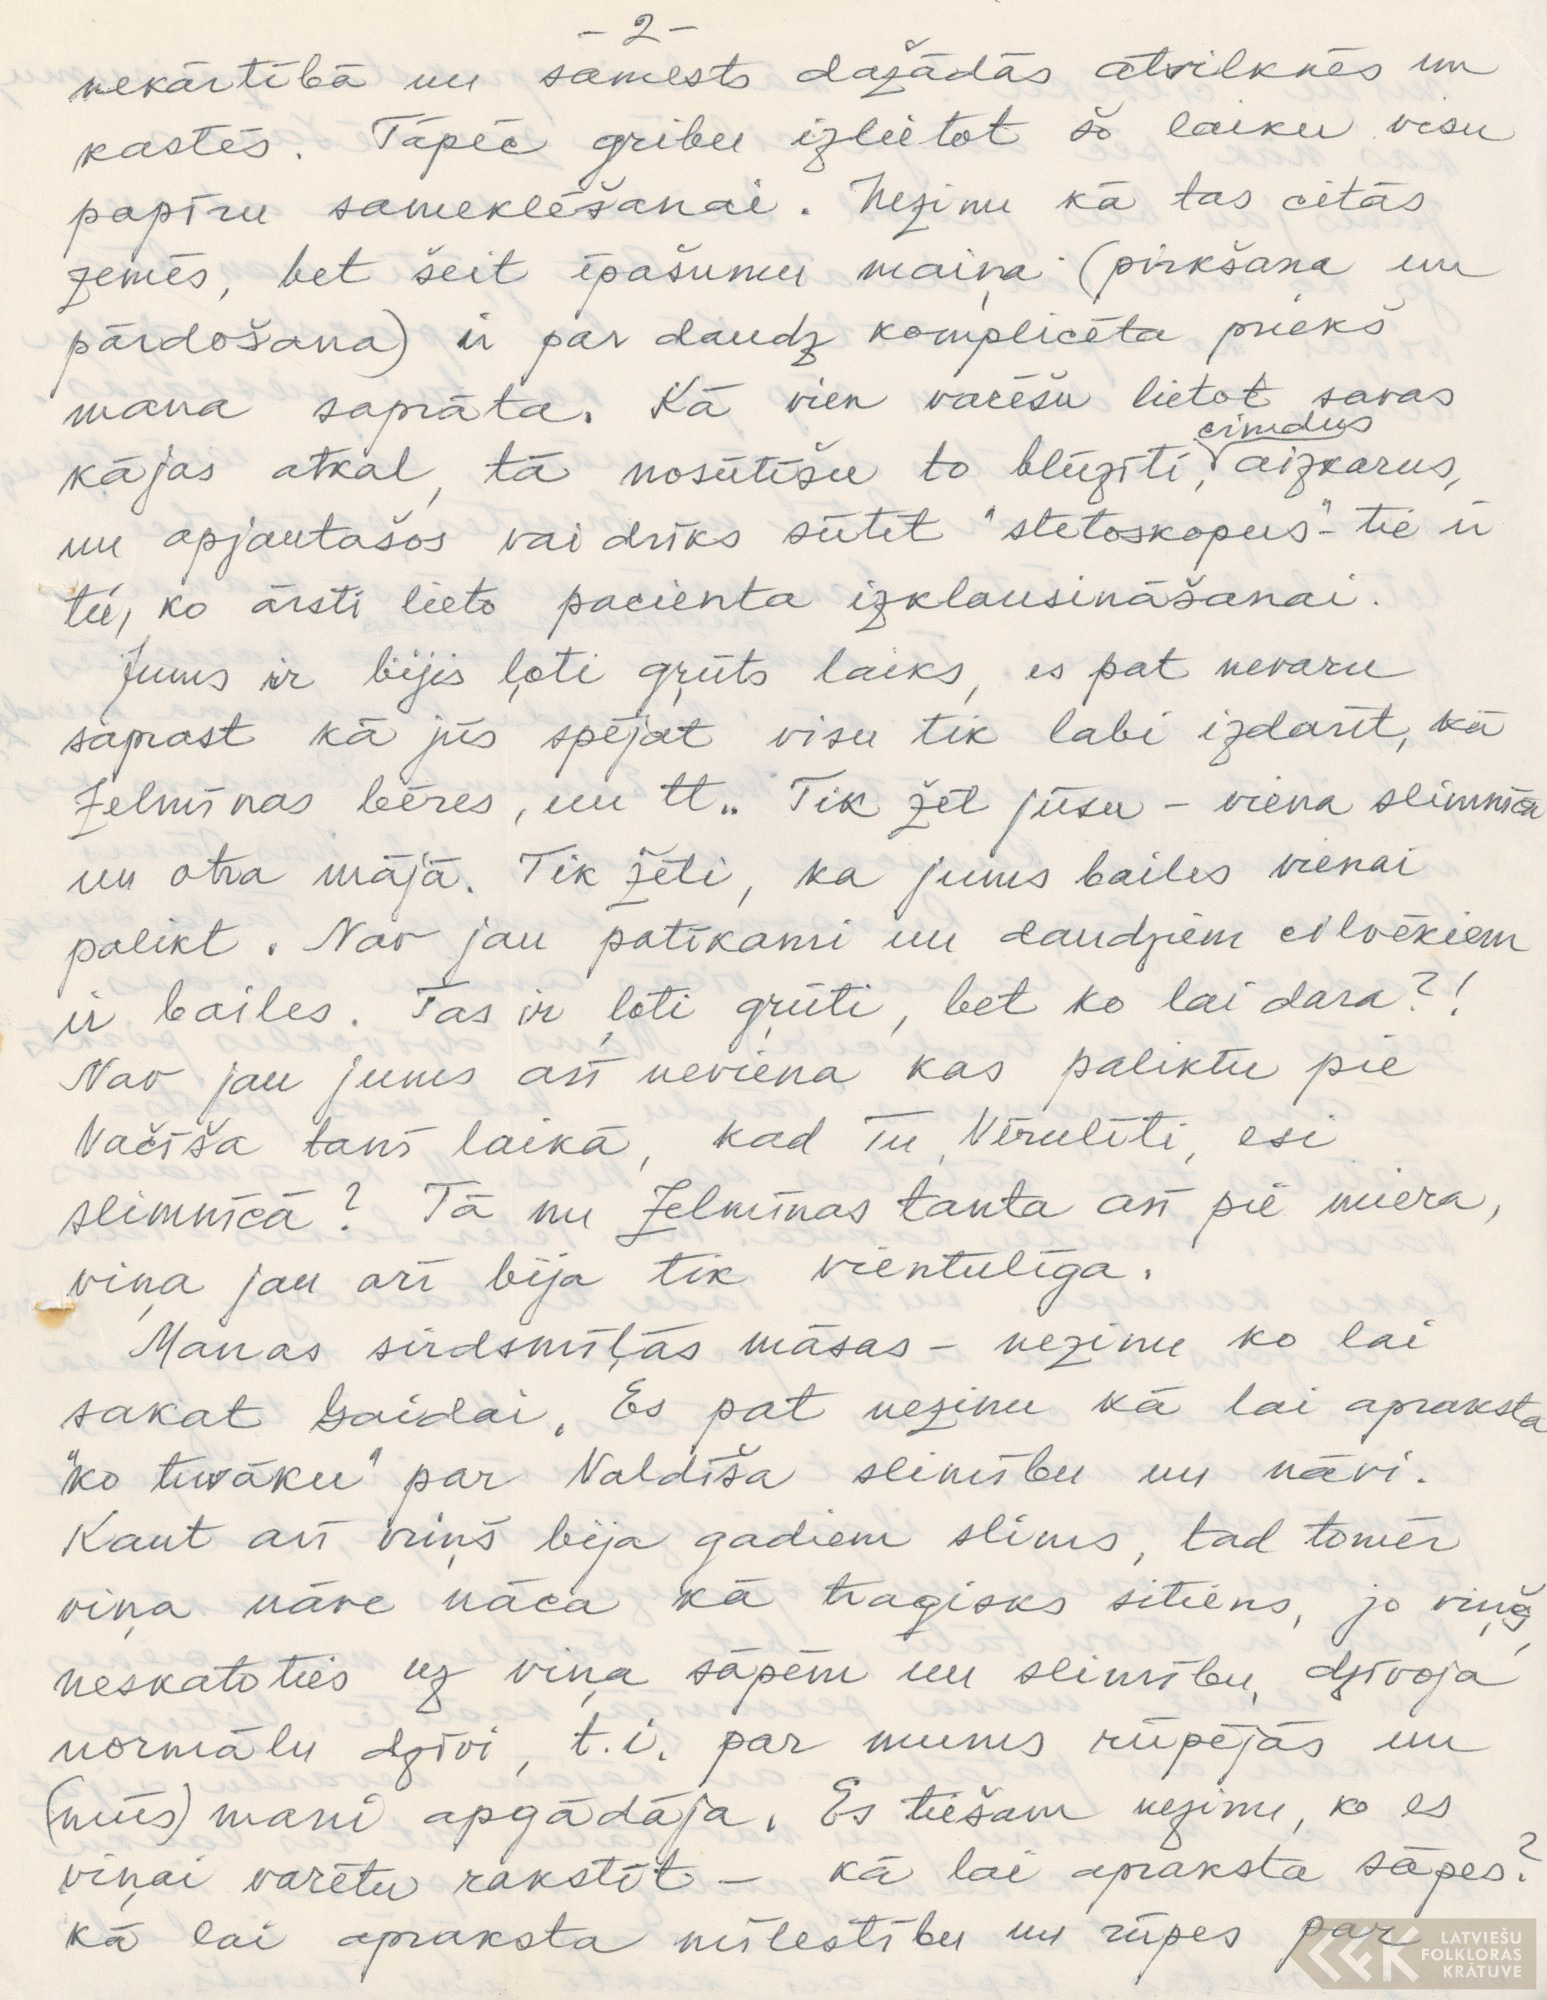 - 2 -
nekārtībā un samests dažādās atvilknēs un
kastēs. Tāpēc gribu izlietot šo laiku visu
papīru sameklēšanai. Nezinu kā tas citās
zemēs, bet šeit īpašumu maiņa (pirkšana un
pārdošana) ir par daudz komplicēta priekš
mana saprāta. Kā vien varēšu lietot savas
cimdus
kājas atkal, tā nosūtīšu to blūzīti, aizkarus,
un apjautašos vai drīks sūtīt "stetoskopus" - tie ir
tie, ko ārsti lieto pacienta izklausināšanai.
Jums ir bijis ļoti grūts laiks, es pat nevaru
saprast kā jūs spējat visu tik labi izdarīt, kā
Zelmīnas bēres, un tt.. Tik žēl jūsu - viena slimnīcā
un otra mājā. Tik žēli, ka jums bailes vienai
palikt. Nav jau patīkami un daudziem cilvēkiem
ir bailes. Tas ir ļoti grūti, bet ko lai dara?!
Nav jau jums arī neviena kas paliktu pie
Načīša tanī laikā, kad Tu, Vērulīti, esi
slimnīcā? Tā nu Zelmīnas tanta arī pie miera,
viņa jau arī bija tik vientulīga.
Manas sirdsmīļās māsas - nezinu ko lai
sakat Gaidai. Es pat nezinu kā lai apraksta
"ko tuvāku" par Valdīša slimību un nāvi.
Kaut arī viņš bija gadiem slims, tad tomēr
viņa nāve nāca kā tragisks sitiens, jo viņš,
neskatoties uz viņa sāpēm un slimību, dzīvoja
normālu dzīvi, t.i. par mums rūpējās un
(mūs) mani apgādāja. Es tiešam nezinu, ko es
viņai varētu rakstīt - kā lai apraksta sāpes?
kā lai apraksta mīlestību un rūpes par
LATVIEŠU
FOLKLORAS
KRĀTUVE